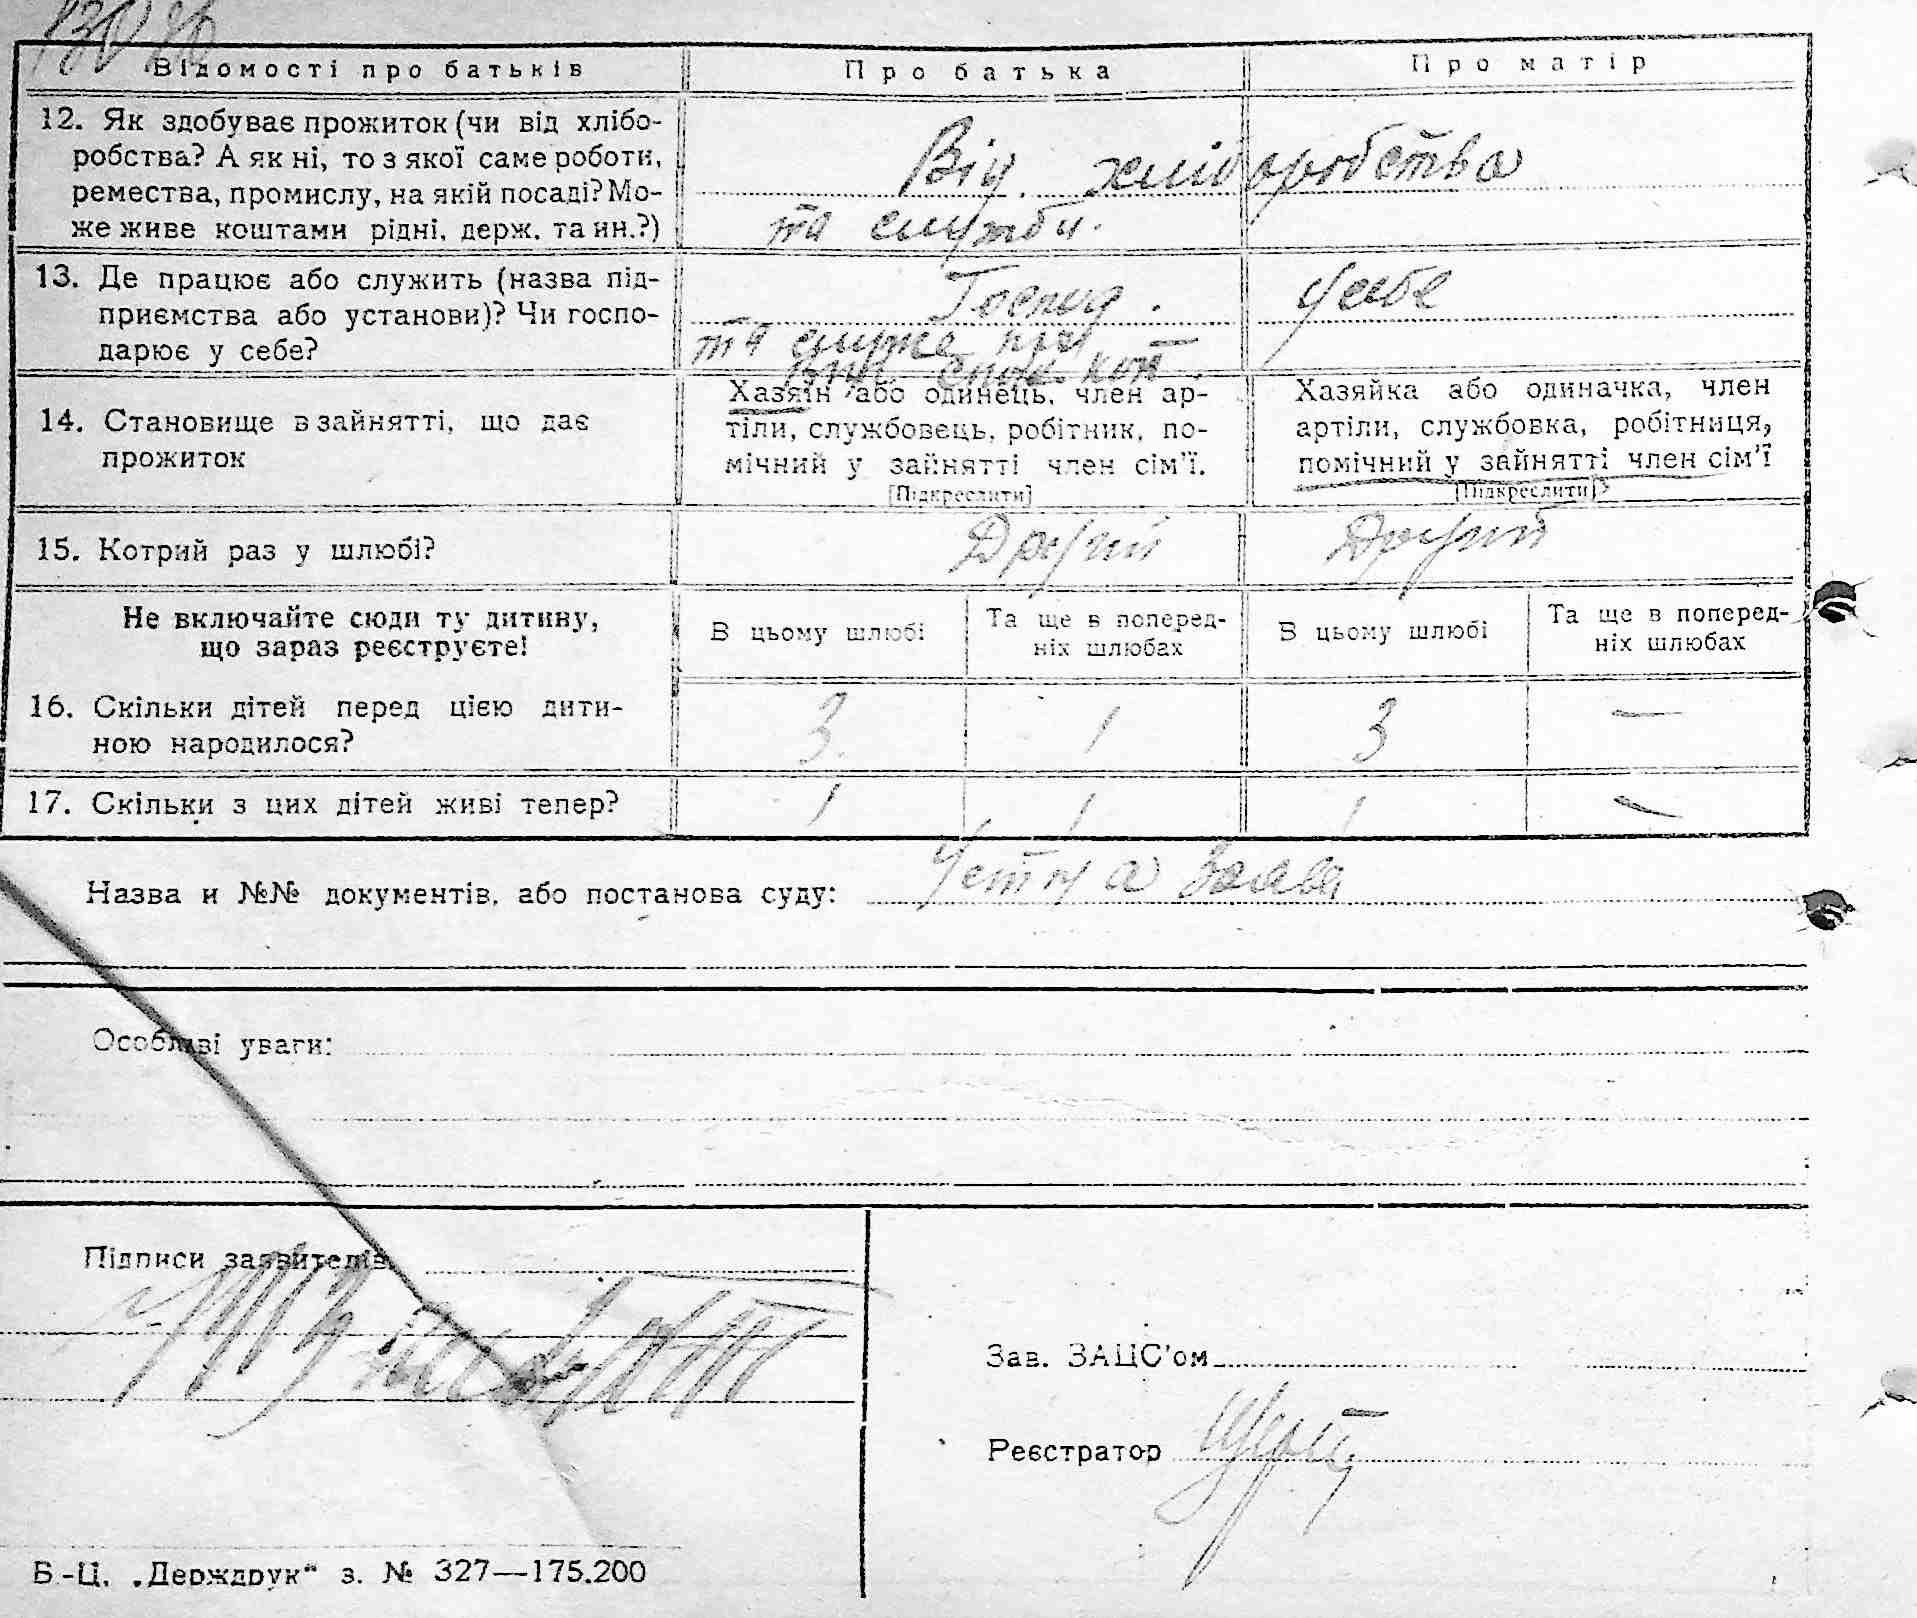 Відомості про батьків Про батька Про матір
12. Як здобуває прожиток (чи від хлібо-
робства? А як ні, то з якої саме роботи,
ремества, промислу, на якій посаді? Мо-
же живе коштами рідні, держ. та ин.?)
Від хліборобства
та служби.
13. Де працює або служить (назва під-
приємства або установи)? Чи госпо-
дарює у себе?
Господ. у себе
та служе при
спож. кот
14. Становище в зайнятті, що дає
прожиток
Хазяїн або одинець, член ар-
тіли, службовець, робітник, по-
мічний у зайнятті член сім'ї.
[Підкреслити]
Хазяйка або одиначка, член
артіли, службовка, робітниця,
помічний у зайнятті член сім'ї
[Підкреслити]
15. Котрий раз у шлюбі? Другий Другий
Не включайте сюди ту дитину,
що зараз реєструєте!
В цьому шлюбі
Та ще в поперед-
ніх шлюбах
В цьому шлюбі
Та ще в поперед-
ніх шлюбах
16. Скільки дітей перед цією дити-
ною народилося?
3 1 3 —
17. Скільки з цих дітей живі тепер? 1 1 1 —
Назва и №№ документів, або постанова суду: Устна заява
Особливі уваги:
Підписи заявителів
Зав. ЗАЦС'ом
Реєстратор
Б.-Ц. „Держдрук" з. № 327—175.200